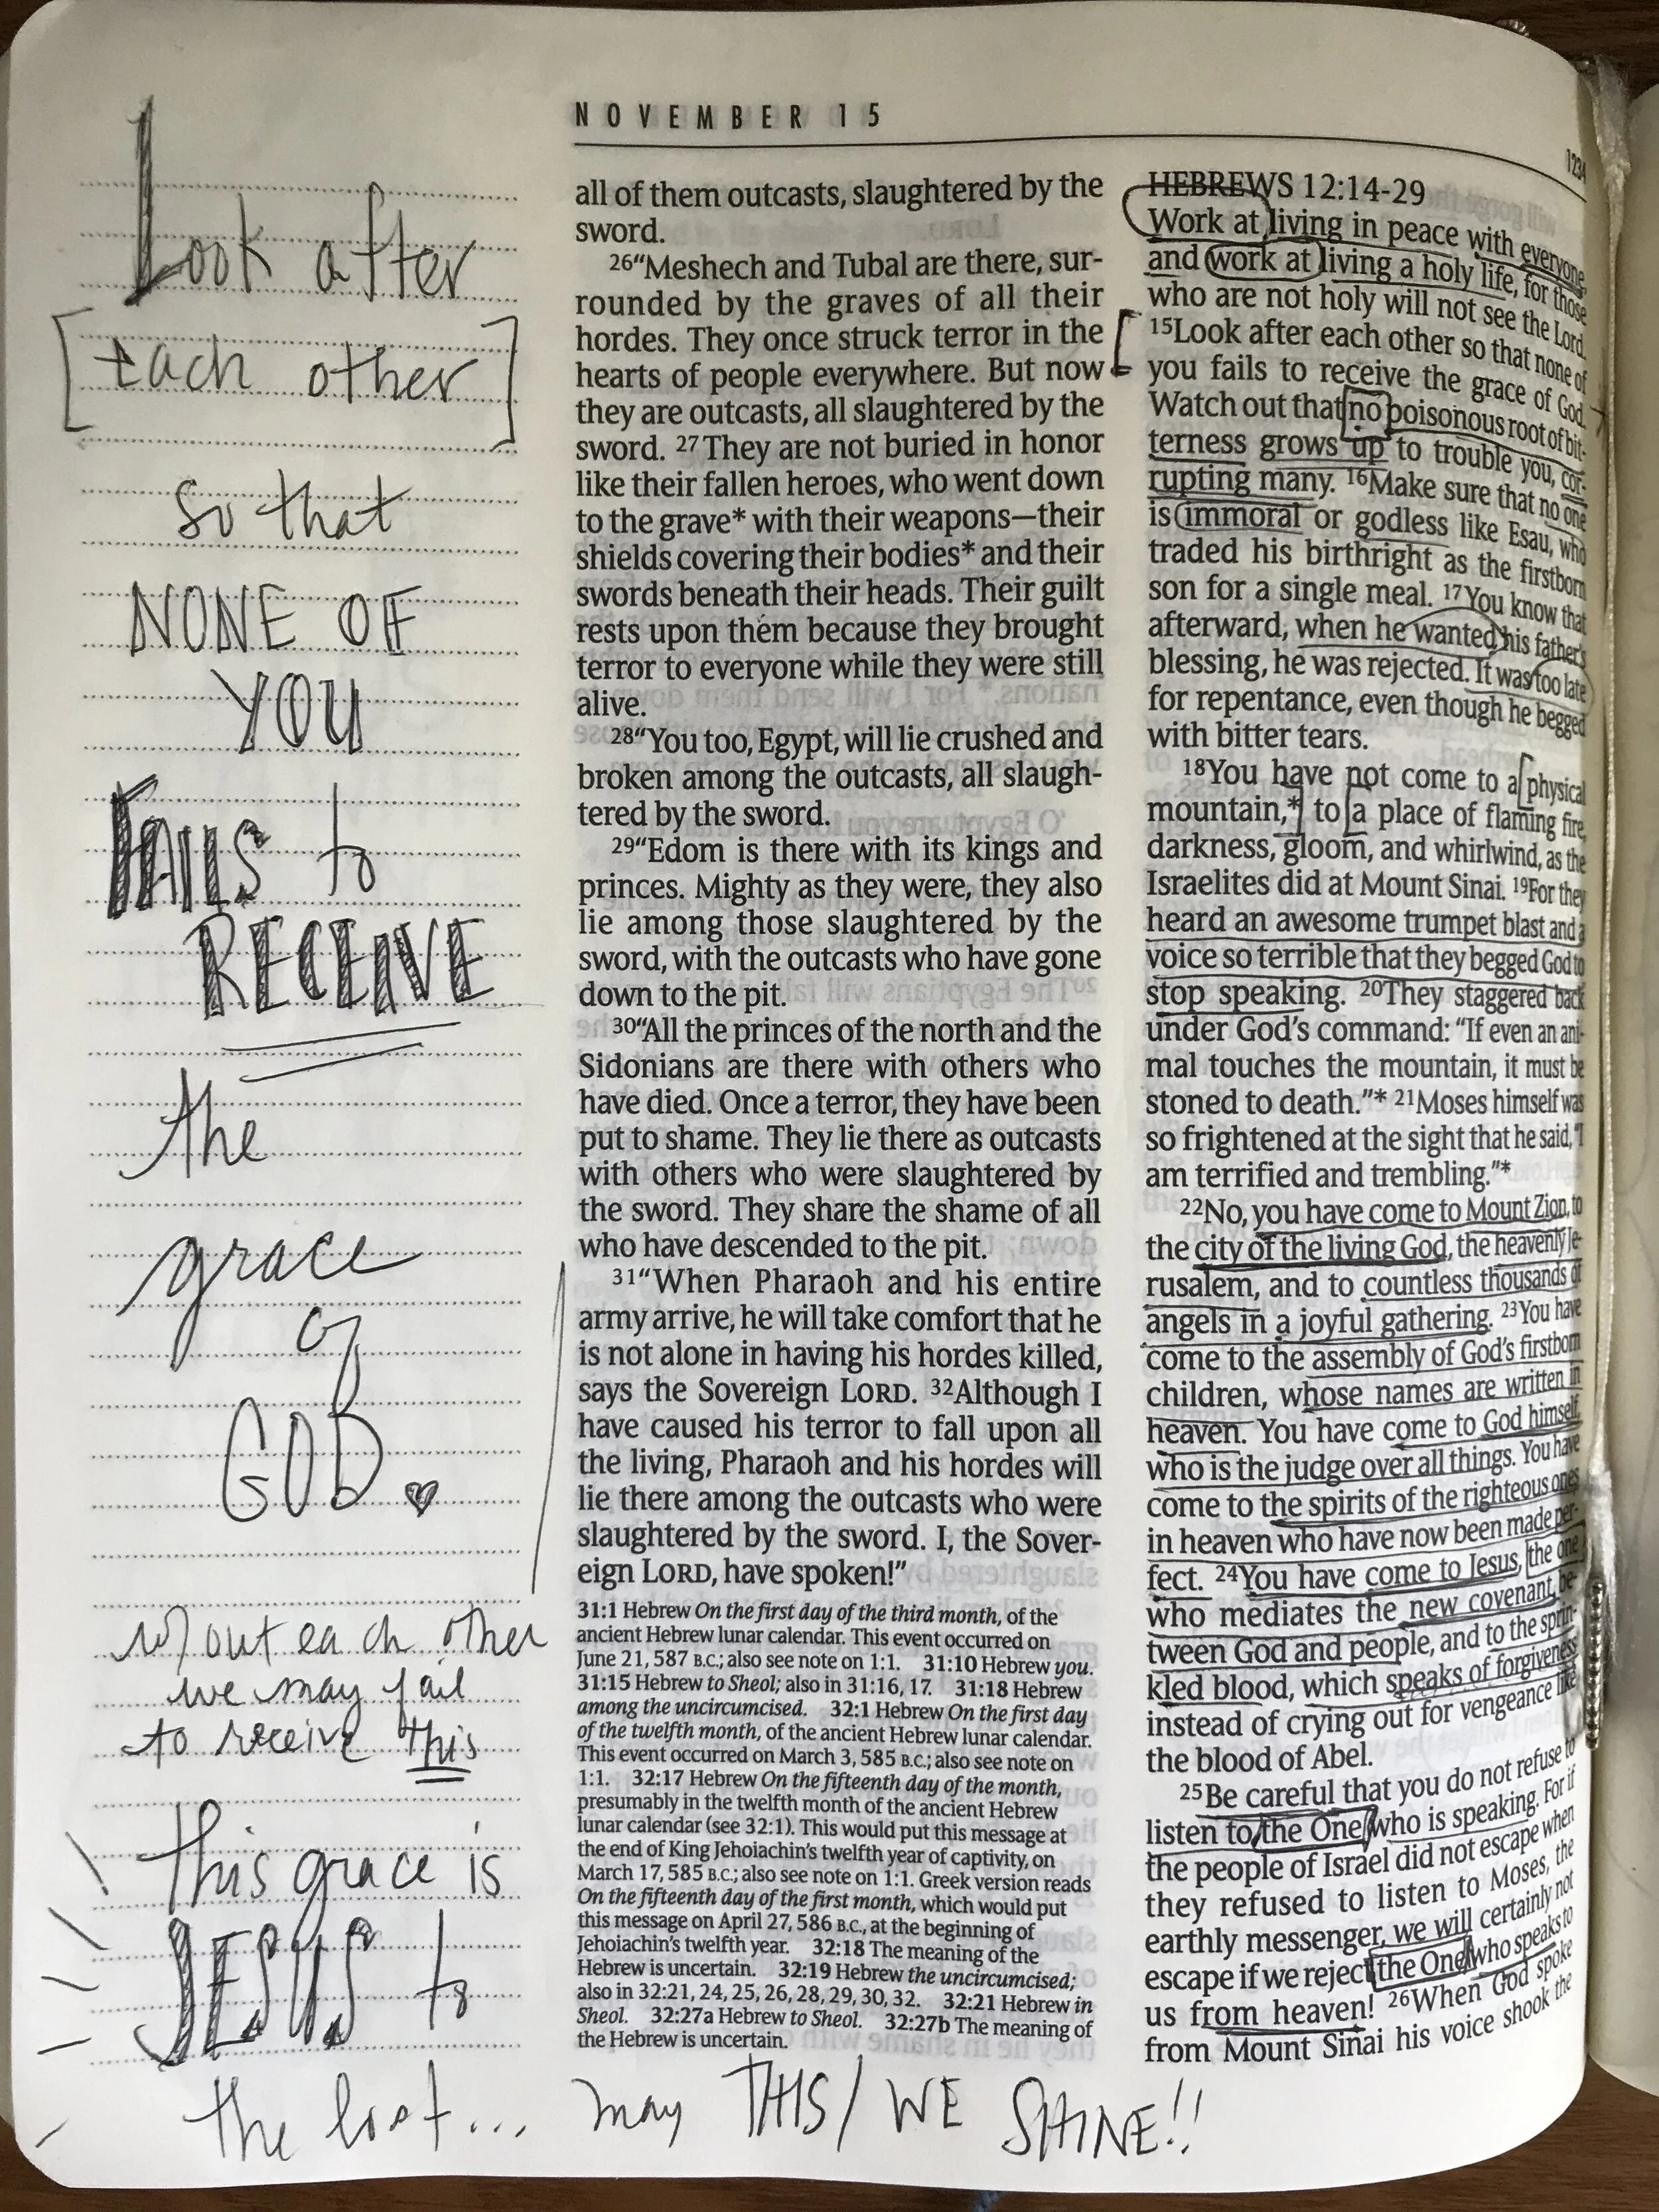 NOVEMBER 15
1234
Look after
[each other]
so that
NONE OF
YOU
FAILS to
RECEIVE
the
grace
of
GOD. ♥
w/out each other
we may fail
to receive this
this grace is
JESUS to
the lost... may THIS / WE SHINE!!
all of them outcasts, slaughtered by the
sword.
26“Meshech and Tubal are there, sur-
rounded by the graves of all their
hordes. They once struck terror in the
hearts of people everywhere. But now
they are outcasts, all slaughtered by the
sword. 27They are not buried in honor
like their fallen heroes, who went down
to the grave* with their weapons—their
shields covering their bodies* and their
swords beneath their heads. Their guilt
rests upon them because they brought
terror to everyone while they were still
alive.
28“You too, Egypt, will lie crushed and
broken among the outcasts, all slaugh-
tered by the sword.
29“Edom is there with its kings and
princes. Mighty as they were, they also
lie among those slaughtered by the
sword, with the outcasts who have gone
down to the pit.
30“All the princes of the north and the
Sidonians are there with others who
have died. Once a terror, they have been
put to shame. They lie there as outcasts
with others who were slaughtered by
the sword. They share the shame of all
who have descended to the pit.
31“When Pharaoh and his entire
army arrive, he will take comfort that he
is not alone in having his hordes killed,
says the Sovereign LORD. 32Although I
have caused his terror to fall upon all
the living, Pharaoh and his hordes will
lie there among the outcasts who were
slaughtered by the sword. I, the Sover-
eign LORD, have spoken!”
31:1 Hebrew On the first day of the third month, of the
ancient Hebrew lunar calendar. This event occurred on
June 21, 587 B.C.; also see note on 1:1. 31:10 Hebrew you.
31:15 Hebrew to Sheol; also in 31:16, 17. 31:18 Hebrew
among the uncircumcised. 32:1 Hebrew On the first day
of the twelfth month, of the ancient Hebrew lunar calendar.
This event occurred on March 3, 585 B.C.; also see note on
1:1. 32:17 Hebrew On the fifteenth day of the month,
presumably in the twelfth month of the ancient Hebrew
lunar calendar (see 32:1). This would put this message at
the end of King Jehoiachin’s twelfth year of captivity, on
March 17, 585 B.C.; also see note on 1:1. Greek version reads
On the fifteenth day of the first month, which would put
this message on April 27, 586 B.C., at the beginning of
Jehoiachin’s twelfth year. 32:18 The meaning of the
Hebrew is uncertain. 32:19 Hebrew the uncircumcised;
also in 32:21, 24, 25, 26, 28, 29, 30, 32. 32:21 Hebrew in
Sheol. 32:27a Hebrew to Sheol. 32:27b The meaning of
the Hebrew is uncertain.
HEBREWS 12:14-29
Work at living in peace with everyone,
and work at living a holy life, for those
who are not holy will not see the Lord.
15Look after each other so that none of
you fails to receive the grace of God.
Watch out that no poisonous root of bit-
terness grows up to trouble you, cor-
rupting many. 16Make sure that no one
is immoral or godless like Esau, who
traded his birthright as the firstborn
son for a single meal. 17You know that
afterward, when he wanted his father’s
blessing, he was rejected. It was too late
for repentance, even though he begged
with bitter tears.
18You have not come to a physical
mountain,* to a place of flaming fire,
darkness, gloom, and whirlwind, as the
Israelites did at Mount Sinai. 19For they
heard an awesome trumpet blast and a
voice so terrible that they begged God to
stop speaking. 20They staggered back
under God’s command: “If even an ani-
mal touches the mountain, it must be
stoned to death.”* 21Moses himself was
so frightened at the sight that he said, “I
am terrified and trembling.”*
22No, you have come to Mount Zion, to
the city of the living God, the heavenly Je-
rusalem, and to countless thousands of
angels in a joyful gathering. 23You have
come to the assembly of God’s firstborn
children, whose names are written in
heaven. You have come to God himself,
who is the judge over all things. You have
come to the spirits of the righteous ones
in heaven who have now been made per-
fect. 24You have come to Jesus, the one
who mediates the new covenant be-
tween God and people, and to the sprin-
kled blood, which speaks of forgiveness
instead of crying out for vengeance like
the blood of Abel.
25Be careful that you do not refuse to
listen to the One who is speaking. For if
the people of Israel did not escape when
they refused to listen to Moses, the
earthly messenger, we will certainly not
escape if we reject the One who speaks to
us from heaven! 26When God spoke
from Mount Sinai his voice shook the